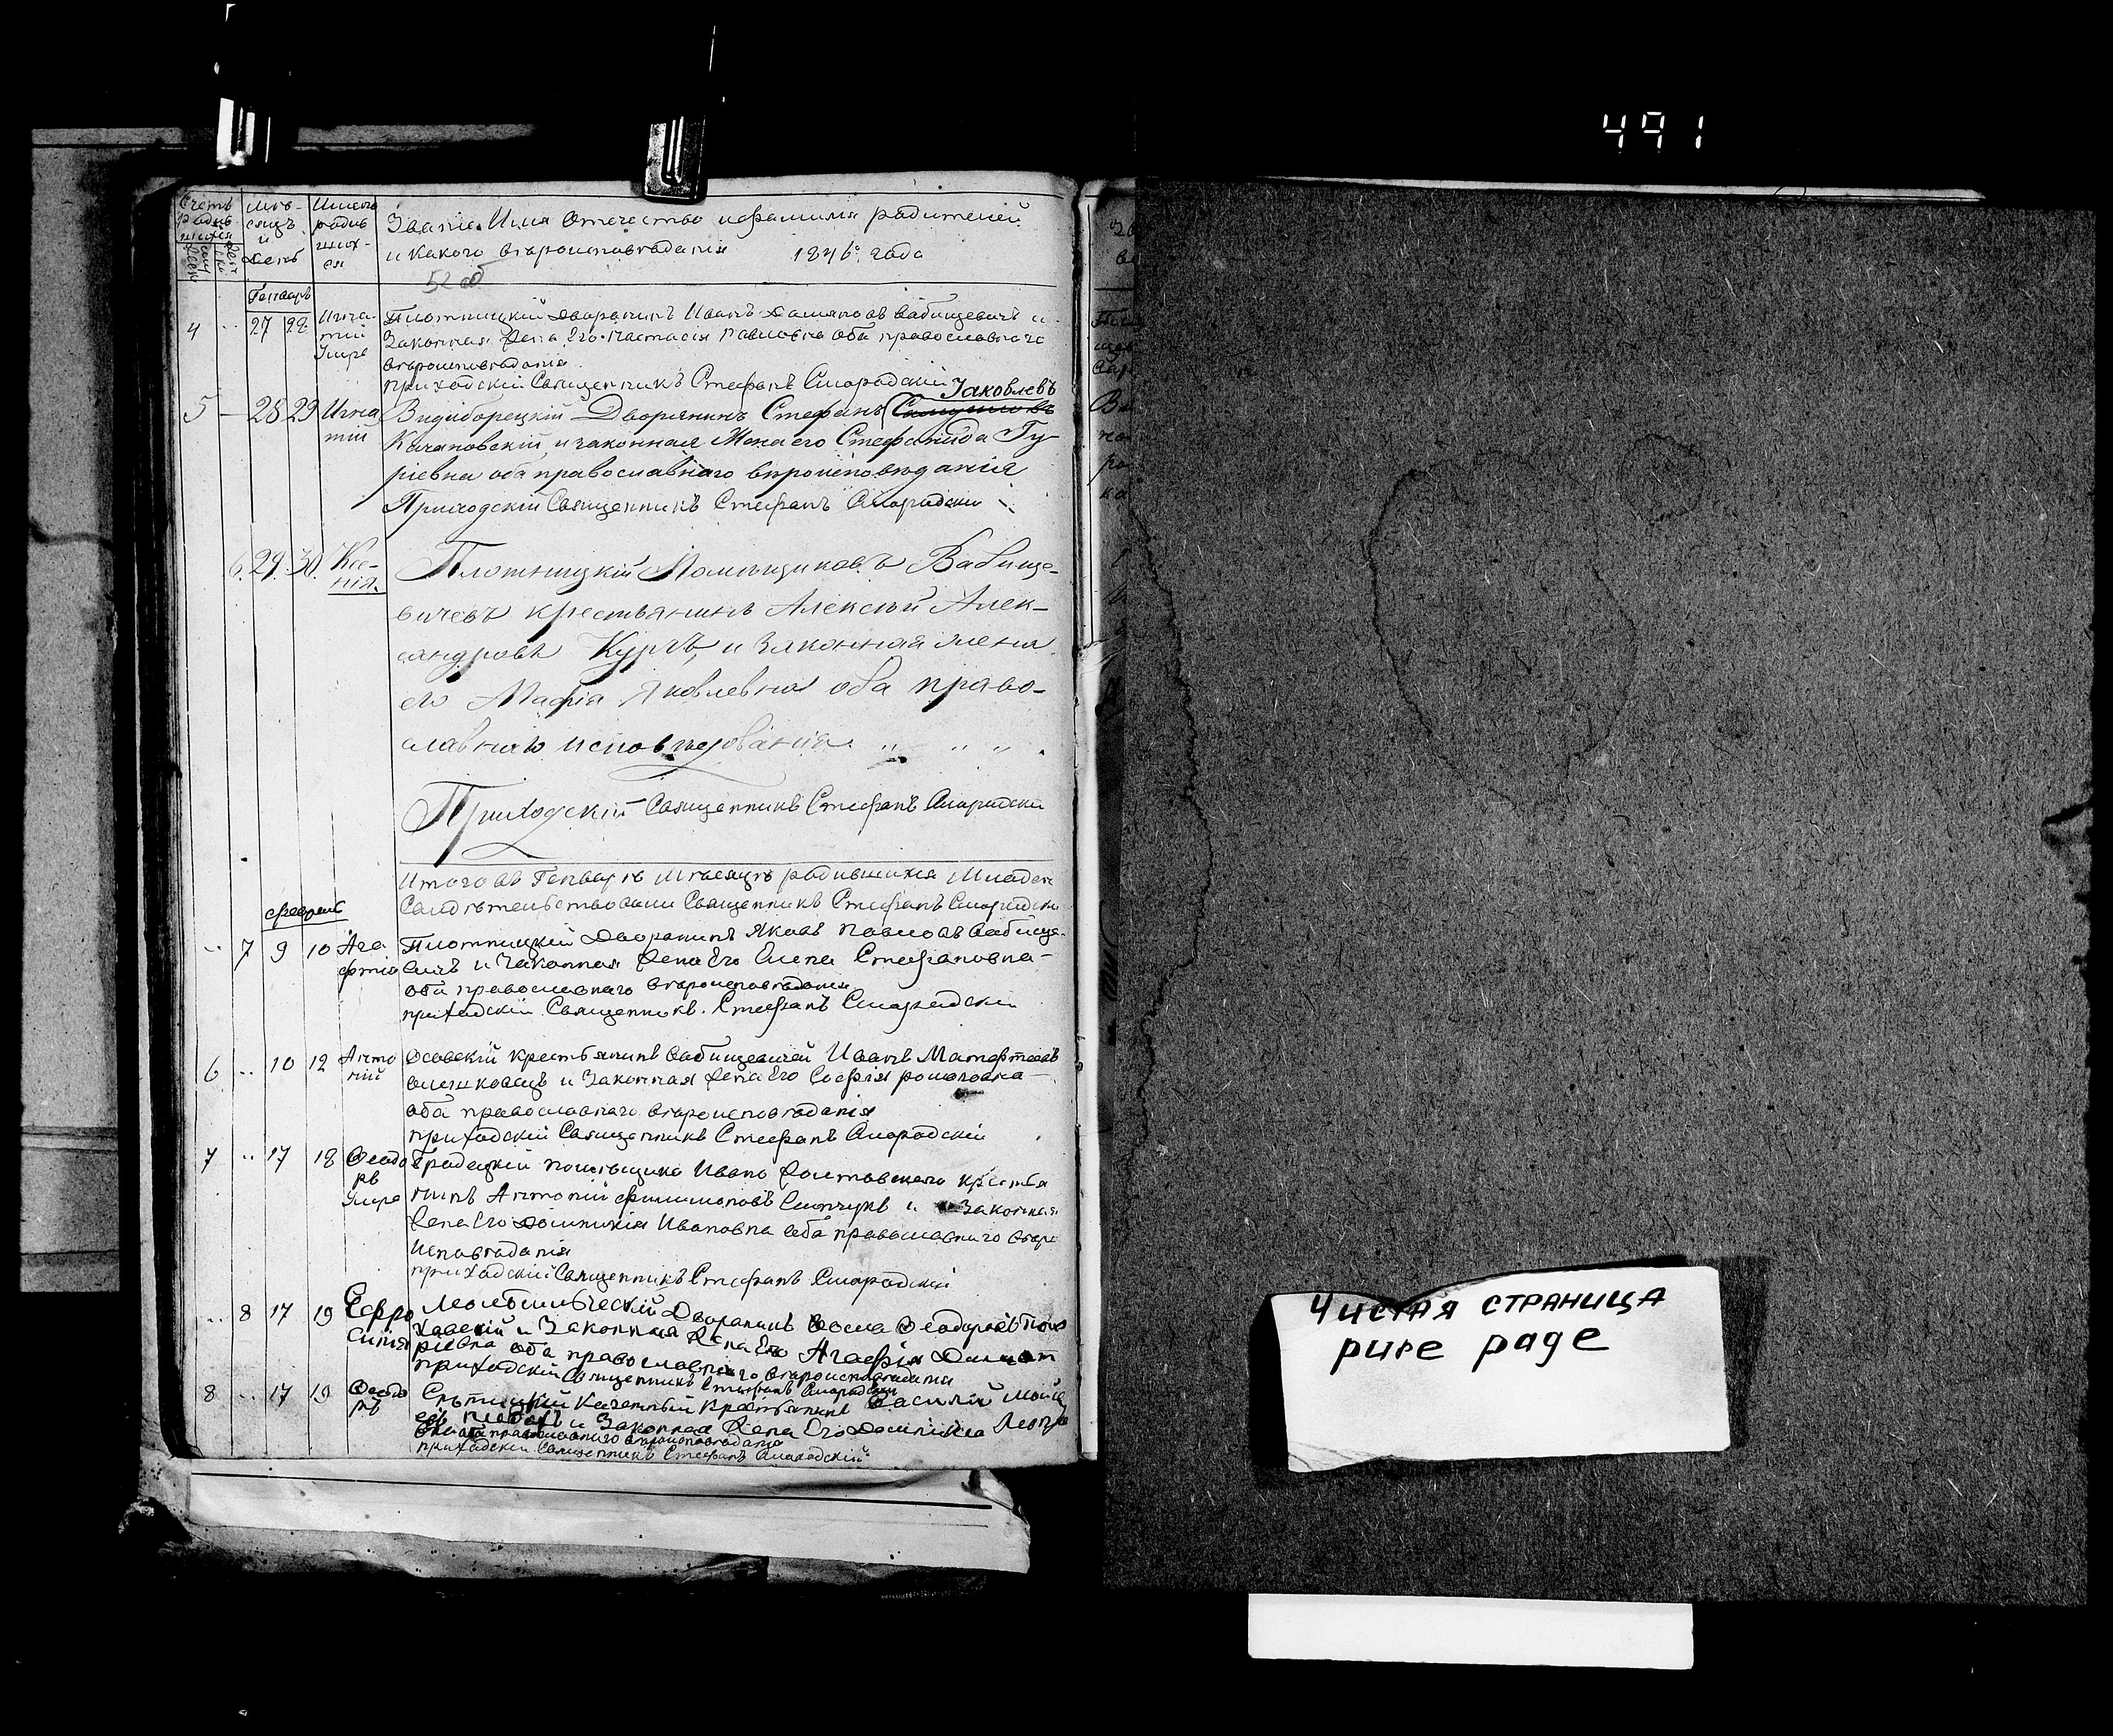 491
Счетъ родив шихся
Мѣ- сяцъ и день
Имена родив ших- ся
Званіе Имя Отечество и фамилия родителей
и какого вѣроисповѣданія 1846 года
52 об
Генваръ
4 " 27 28 Игна- тій Умре
Плотницкій дворянинъ Иванъ Даміановъ Вабищевичъ и
Законная жена Его Настасія Павловна оба православнаго
вѣроисповѣданія
приходскій Священникъ Стефанъ Смородскій
Іаковлевъ
5 — 28 29 Игна тій
Видиборецкій Дворянинъ Стефанъ
Качановскій, и законная Жена его Стефанида Гу-
ріевна оба православнаго вѣроисповѣданія
Приходскій Священникъ Стефанъ Смородски
6. 29. 30. Ксе- нія.
Плотницкій Помѣщиковъ Вабище-
вичевъ крестьянинъ Алексѣй Алек-
сандровъ Куръ, и Законная жена
его Марія Яковлевна оба право-
славнаго исповѣдованія. " " " .
Приходскій Священникъ Стефанъ Смородски
Итого въ Генварѣ Мѣсяцѣ родившихся Младен
Священникъ Стефанъ Смородски
февраль
" 7 9 10 Ага фтія
Плотницкій Дворанинъ Яковъ Павловъ Вабище-
вичъ и Законная жена Его Елена Стефановна
оба православнаго вѣроисповѣданія
приходскій Священникъ. Стефанъ Смородски
6 " 10 12 Анто ній
Осовскій крестьянинъ Вабищевичей Иванъ
и Законная жена Его Софія романовна
оба православнаго вѣроисповѣданія
приходскій Священникъ Стефанъ Смородскій
7 " 17 18 Феодо ръ Умре
помѣщика Ивана крестья
нинъ Антоній филимоновъ и Законная
жена Его Домникія Ивановна оба православнаго вѣро
исповѣданія
приходскій Священникъ Стефанъ Смородскій
" 8 17 19 Ефро синія
Дворанинъ Фома Феодоровъ
и Законная жена Его Агафія
ріевна оба православнаго вѣроисповѣданія
приходскій Священникъ Стефанъ Смородски
8 " 17 19 Феодо ръ
Казенный Крестьянинъ Василій Мойсе
евъ и Законная жена Его Домникія
оба православнаго вѣроисповѣданія
приходскій Священникъ Стефанъ Смородскій
Чистая СТРАНИЦА
pure page